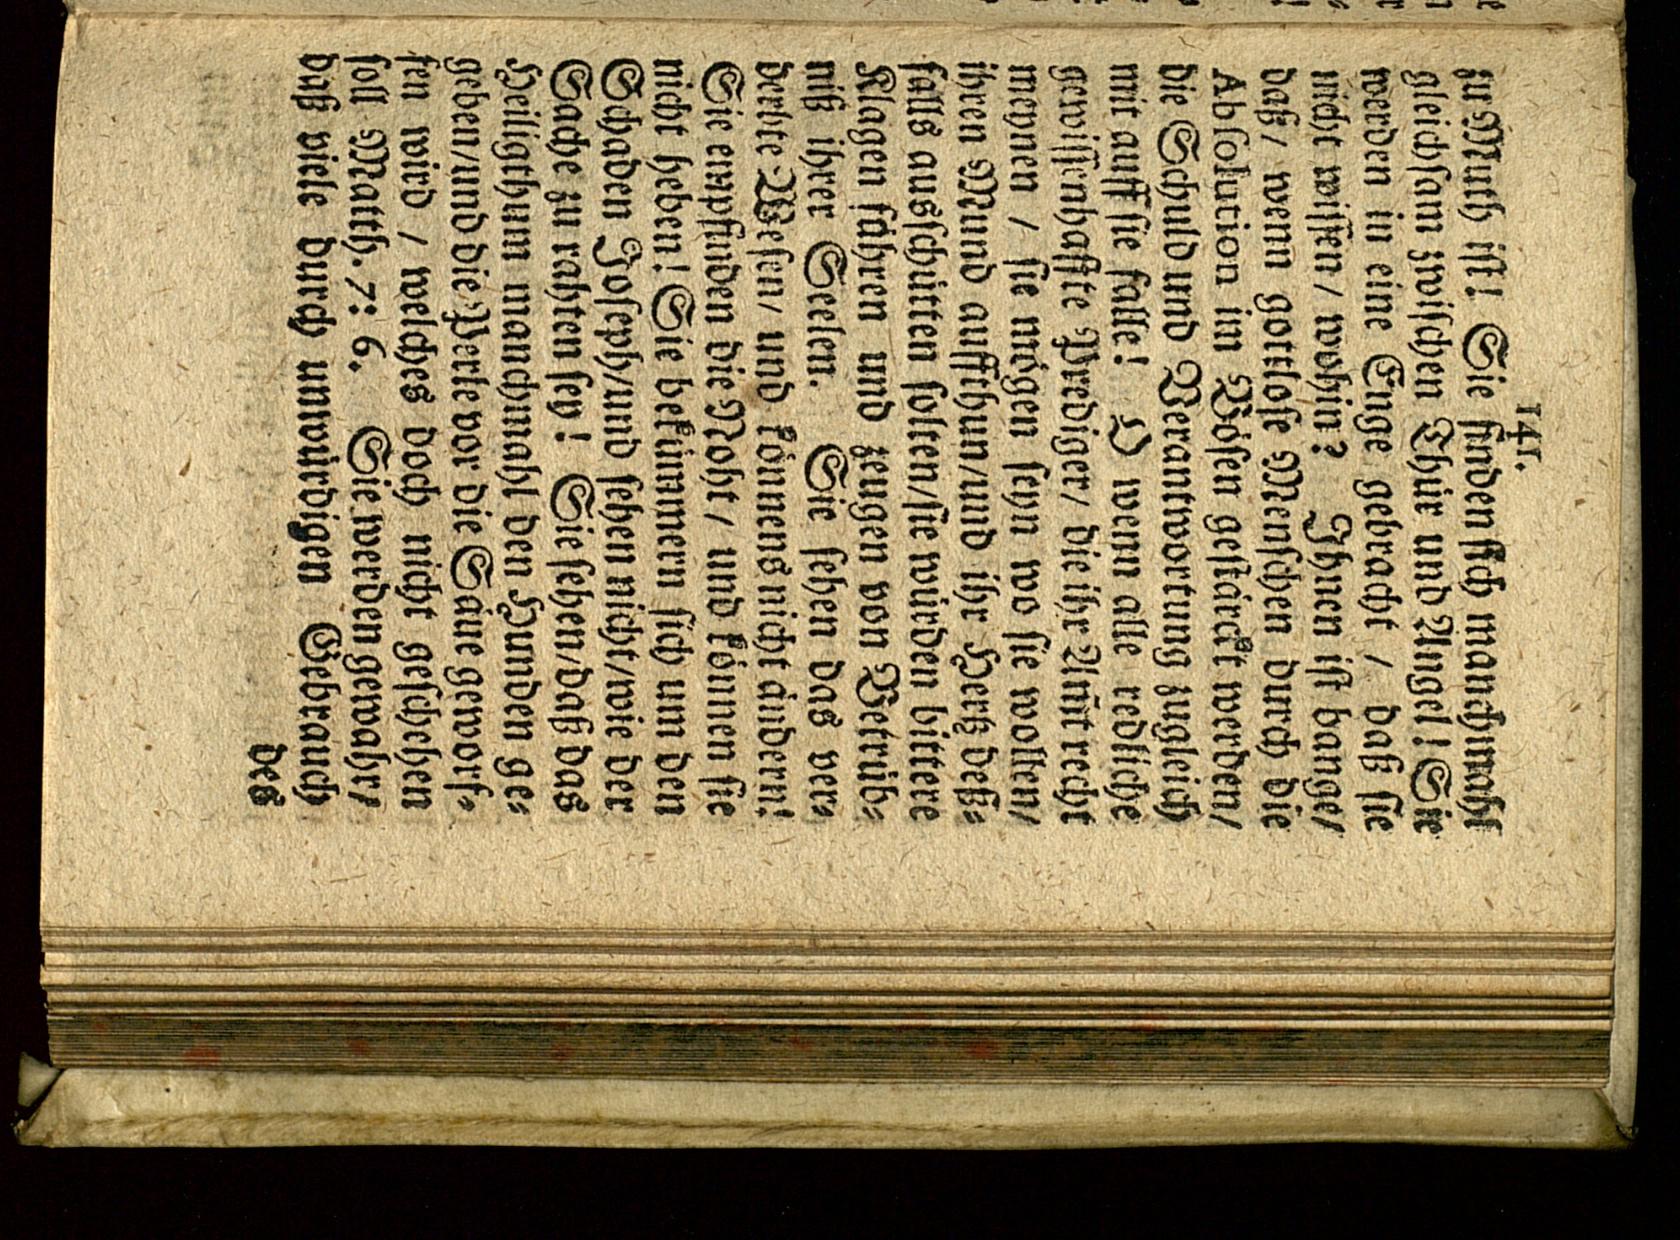 141.
zu Muth ist! Sie finden sich manchmahl
gleichsam zwischen Thür und Angel! Sie
werden in eine Enge gebracht / daß sie
nicht wissen / wohin? Ihnen ist bange/
daß / wenn gottlose Menschen durch die
Absolution im Bösen gestärckt werden/
die Schuld und Verantwortung zugleich
mit auff sie falle! O wenn alle redliche
gewissenhaffte Prediger/ die ihr Amt recht
meynen / sie mögen seyn wo sie wollen/
ihren Mund aufftthun/und ihr Hertz deß-
falls ausschütten solten/sie würden bittere
Klagen führen und zeugen von Betrüb-
niß ihrer Seelen. Sie sehen das ver-
derbte Wesen/ und könnens nicht ändern!
Sie empfinden die Noht / und können sie
nicht heben! Sie bekümmern sich um den
Schaden Joseph/und sehen nicht/wie der
Sache zu rahten sey! Sie sehen/daß das
Heiligthum manchmahl den Hunden ge-
geben/und die Perle vor die Säue geworf-
fen wird / welches doch nicht geschehen
soll Matth. 7: 6. Sie werden gewahr/
daß viele durch unwürdigen Gebrauch
des